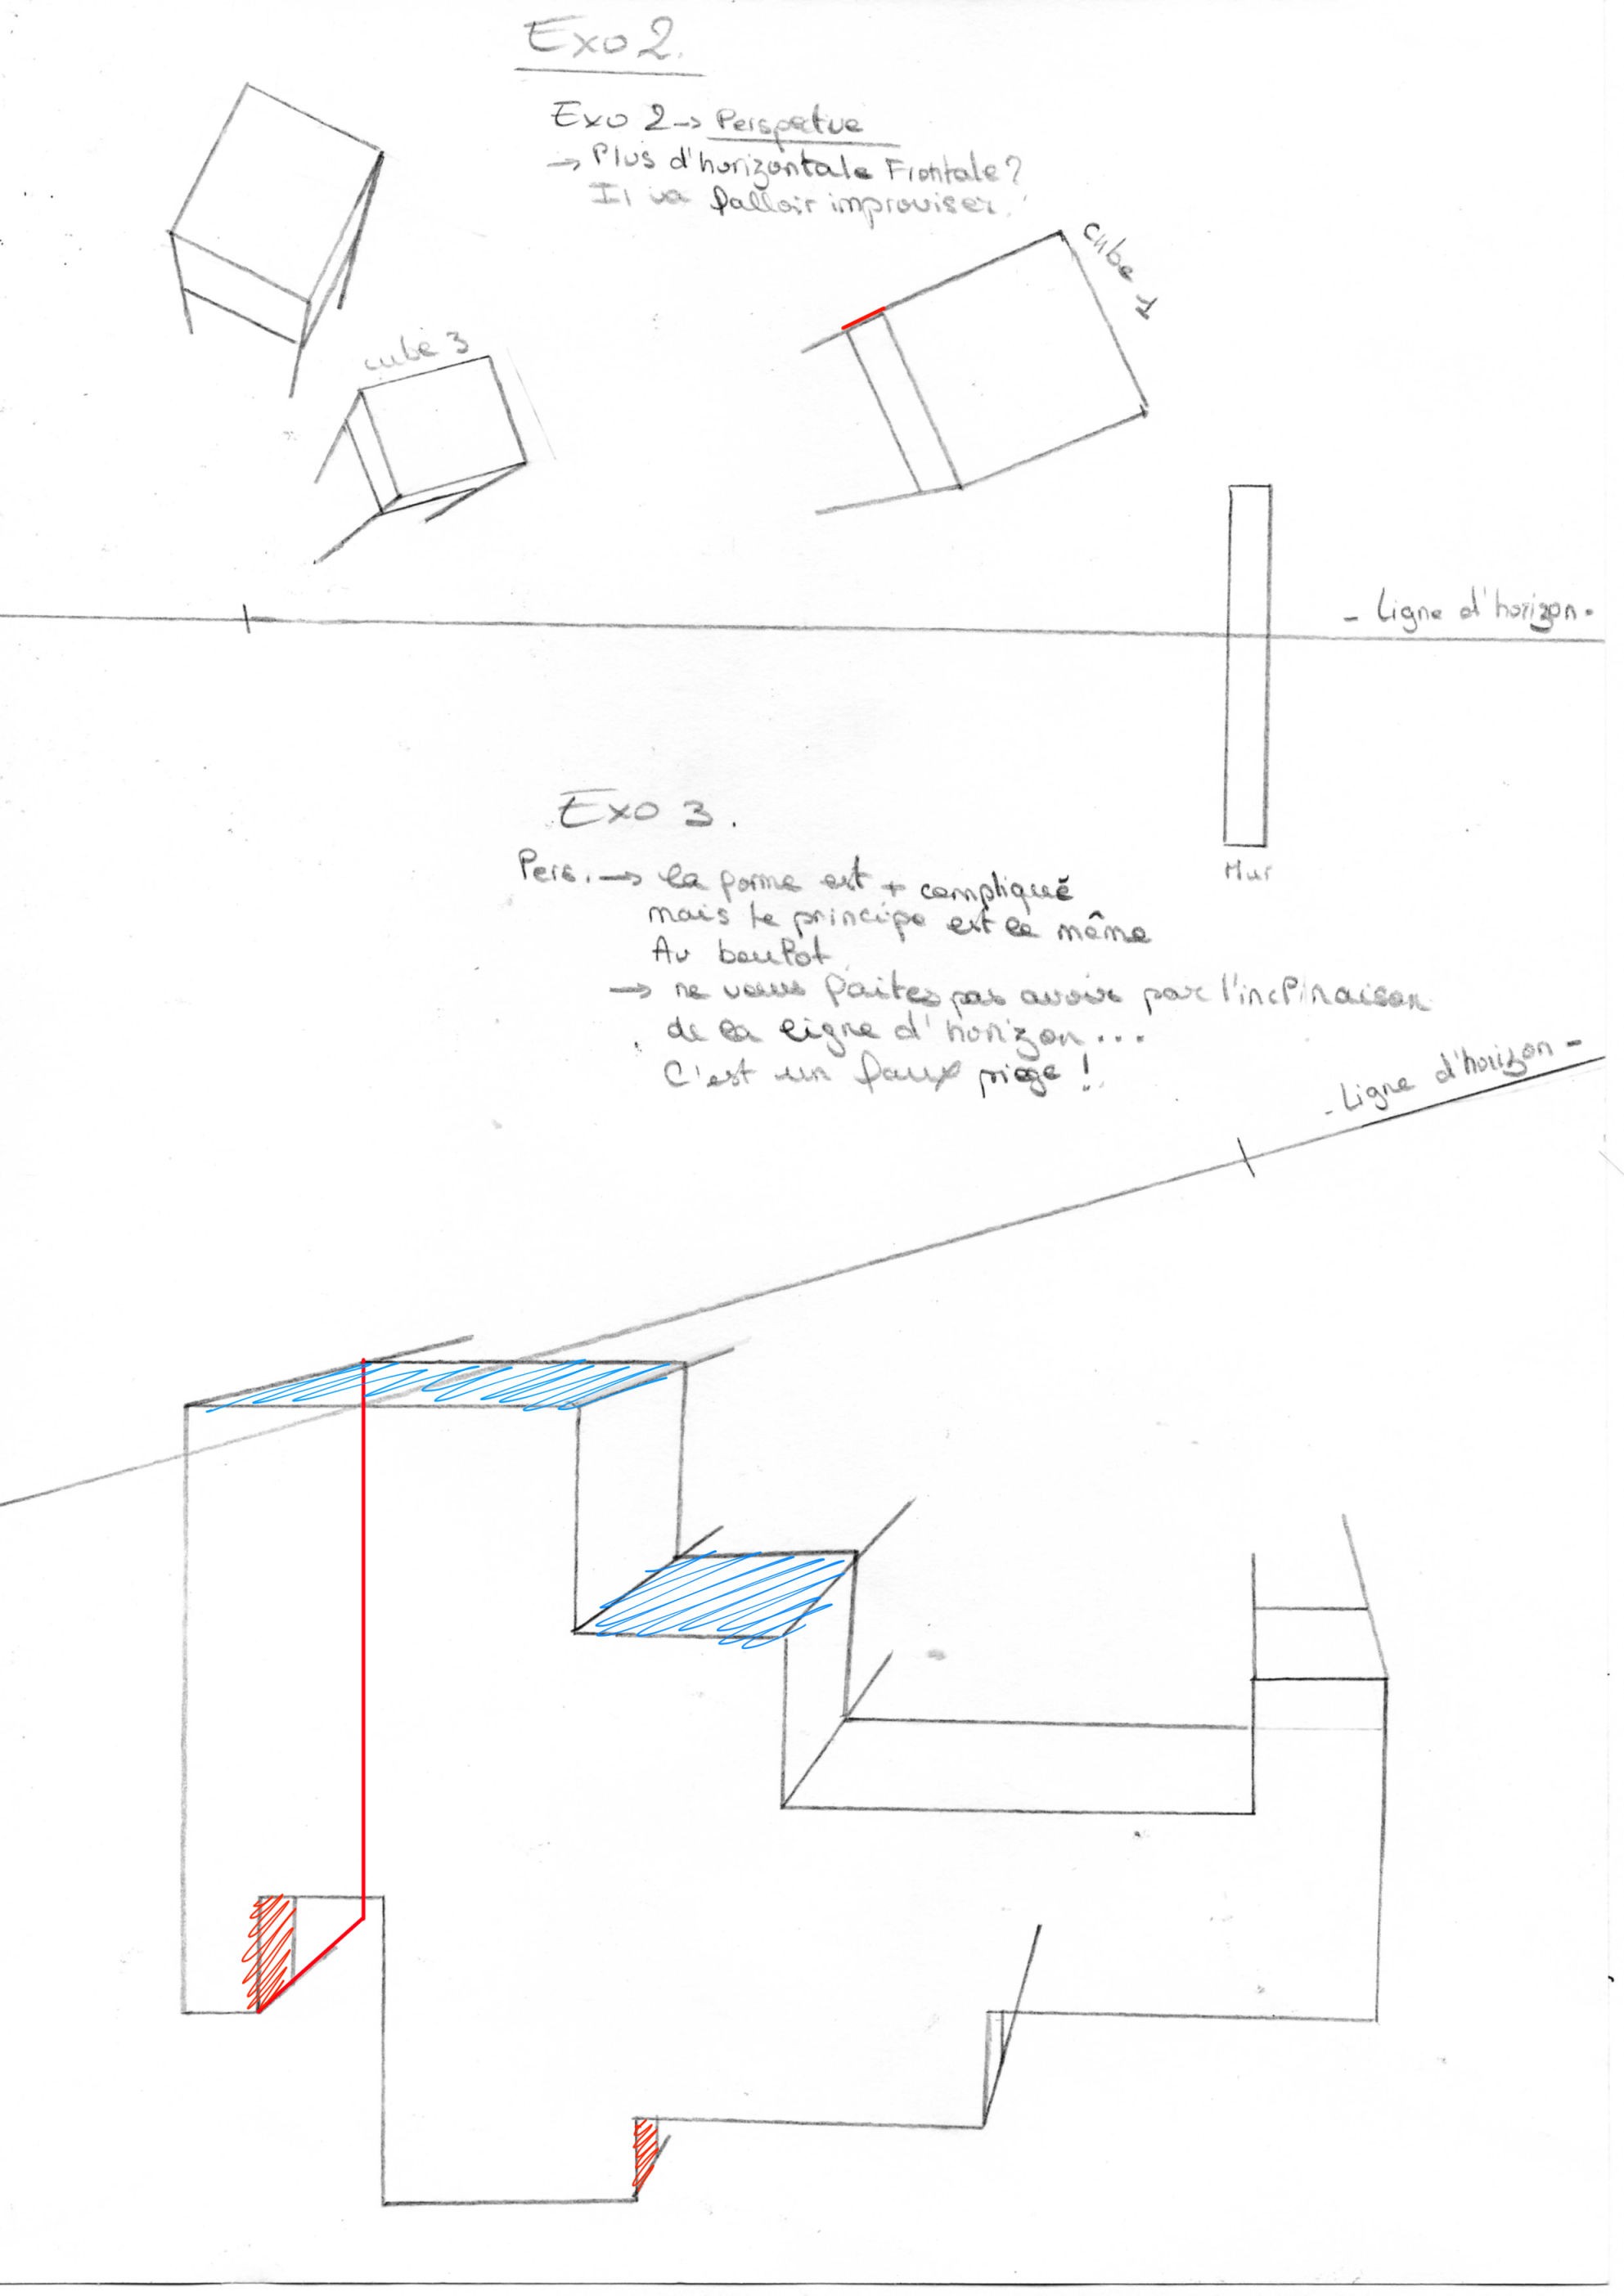 Exo 2.
Exo 2 -> Perspectue
-> Plus d'horizontale Frontale?
Il va falloir improviser.
cube 1
cube 3
- Ligne d'horizon -
Mur
Exo 3.
Pers. -> la forme est + compliqué
mais le principe est le même
Au boulot
-> ne vous faites pas avoir par l'inclinaison
de la ligne d'horizon...
C'est un faux piege !
- Ligne d'horizon -